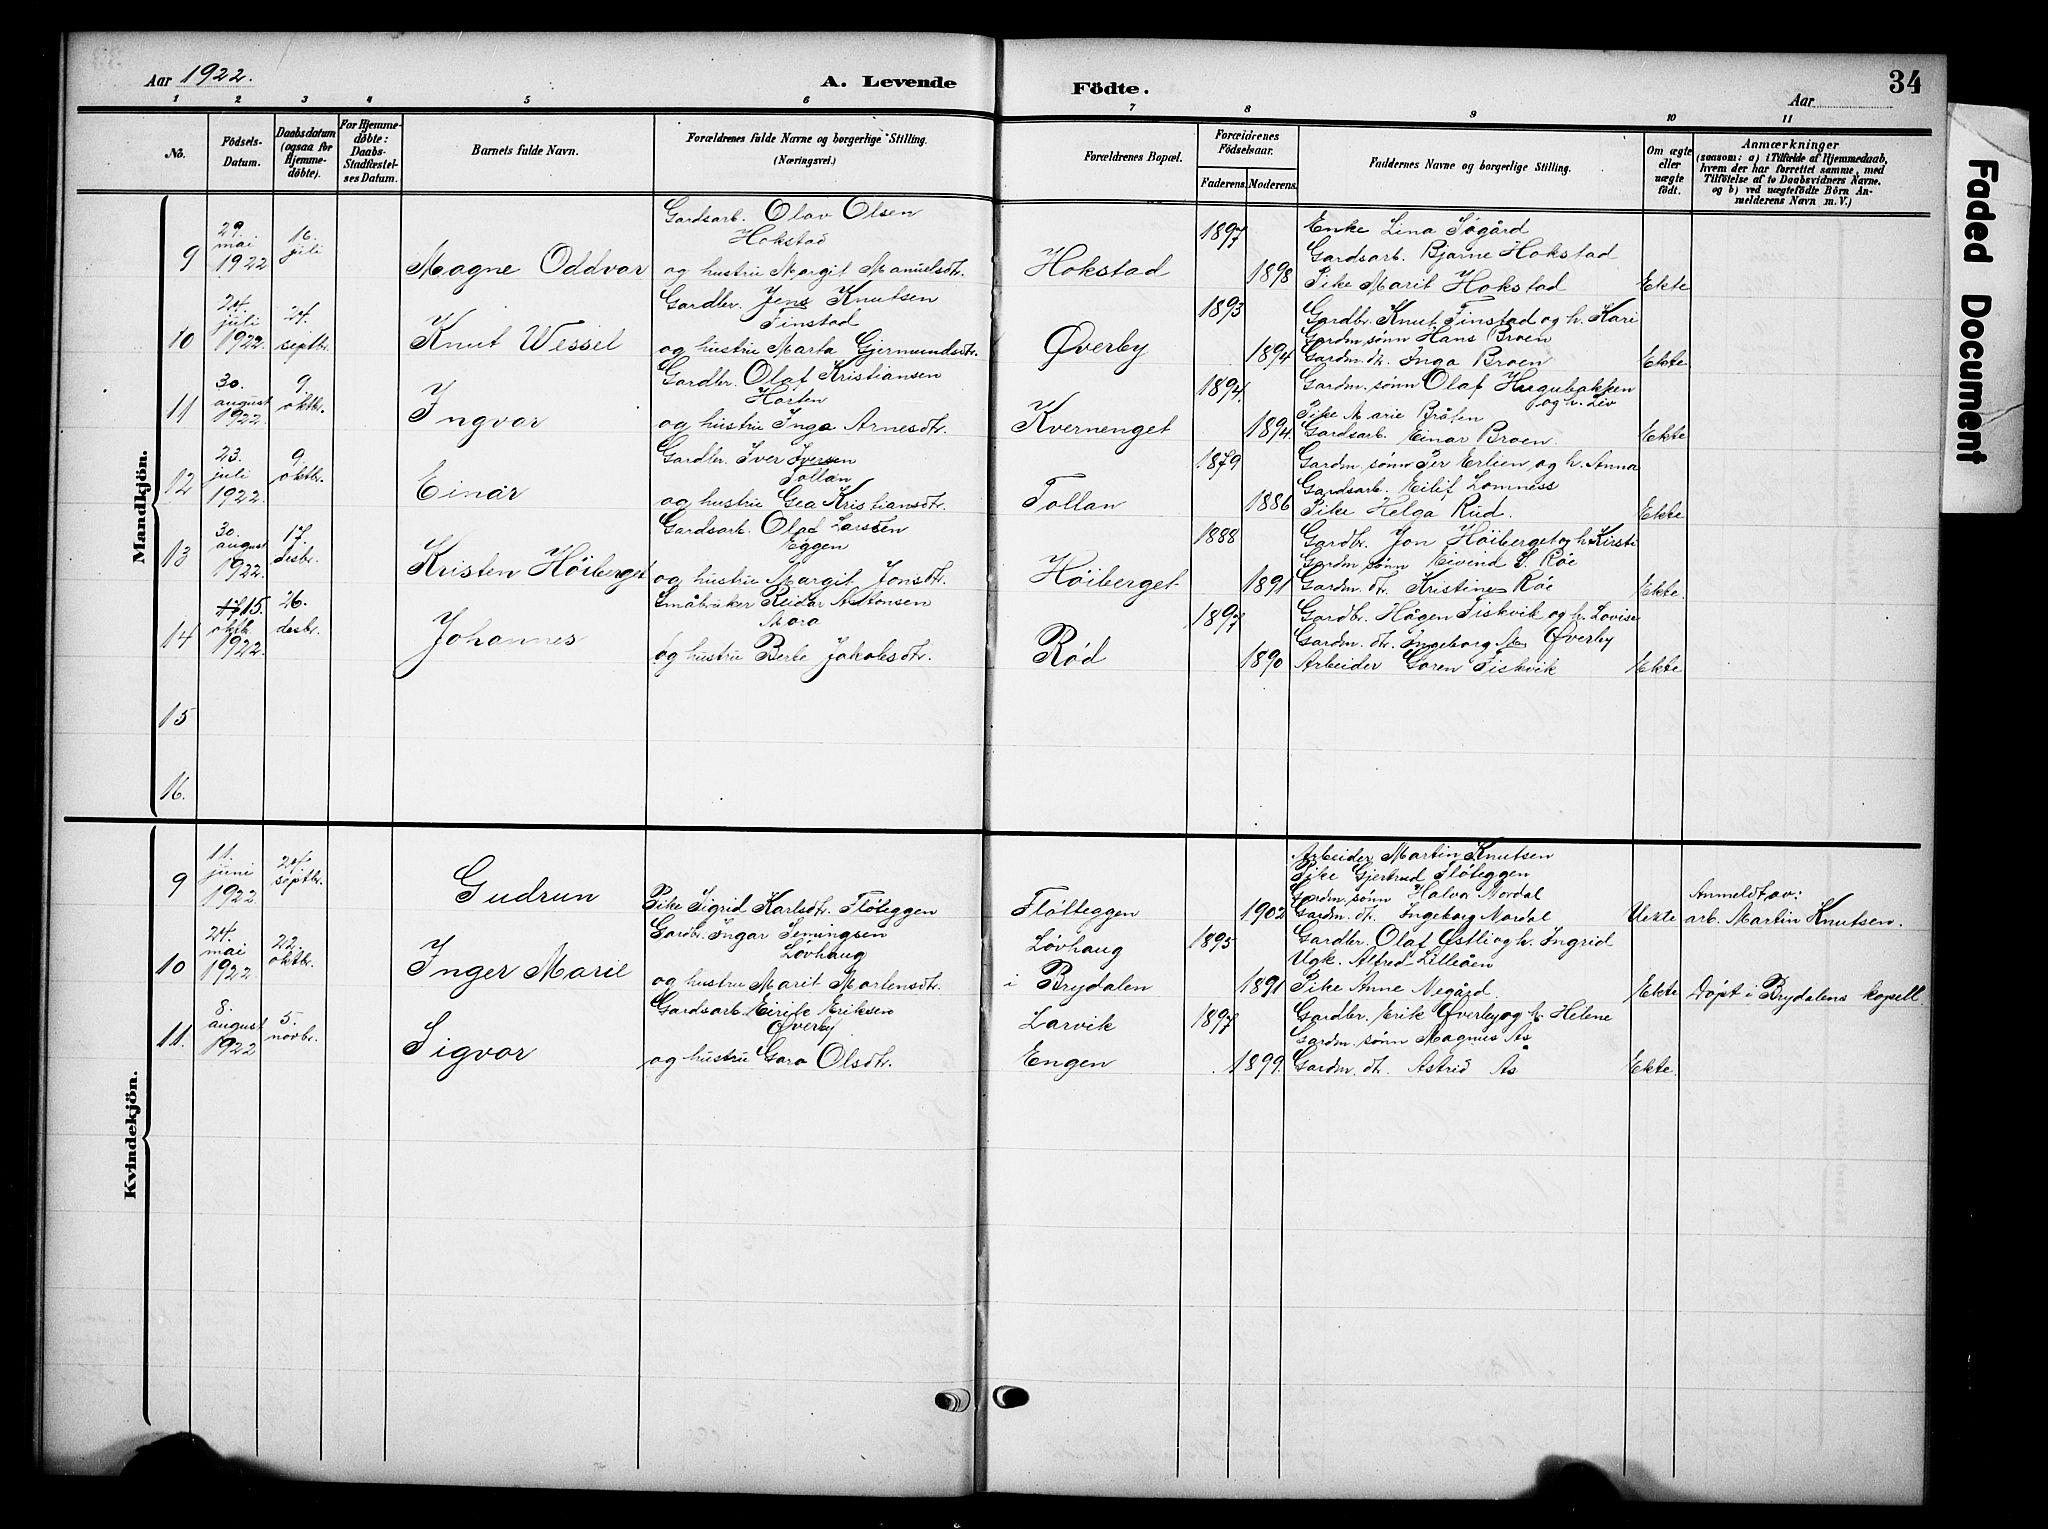 Aar 1922.
A. Levende Födte.
34
Aar
1 2 3 4 5 6 7 8 9 10 11
No.
Födsels-Datum.
Daabsdatum (ogsaa for Hjemme-döbte).
For Hjemme-döbte: Daabs-Stadfæstel-ses Datum.
Barnets fulde Navn.
Forældrenes fulde Navne og borgerlige Stilling.
(Næringsvei.)
Forældrenes Bopæl.
Forældrenes Födselsaar.
Faderens. Moderens.
Faddernes Navne og borgerlige Stilling.
Om ægte eller uægte födt.
Anmærkninger
(saasom: a) i Tilfælde af Hjemmedaab, hvem der har forrettet samme, med Tilföielse af to Daabsvidners Navne, og b) ved uægtefödte Börn An-melderens Navn m. V.)
Faded Document
Mandkjön.
9 29. mai 1922 16. juli
Magne Oddvar
Gardsarb. Olav Olsen
Hokstad
og hustru Margit Manuelsdtr.
Hokstad
1897
1898
Enke Lina Søgård
Gardsarb. Bjarne Hokstad
Pike Marit Hokstad
Ekte
10 24. juli 1922. 24. septbr.
Knut Wessel
Gardbr. Jens Knutsen
Finstad
og hustru Marta Gjermundsdtr.
Øverby
1893
1894
Gardbr. Knut Finstad og h. Kari
Gardm. sønn Hans Broen
Gardm. dtr. Inga Broen
Ekte
11 30. august 1922. 9. oktbr.
Ingvar
Gardbr. Olaf Kristiansen
Horten
og hustru Inga Arnesdtr.
Kvernenget
1894.
1894.
Gardm. sønn Olaf Hugubakken
og h. Liv
Pike Marie Bråten
Gardsarb. Einar Broen.
Ekte
12 23. juli 1922. 9. oktbr.
Einar
Gardbr. Iver Iversen
Tollan
og hustru Gea Kristiansdtr.
Tollan
1879
1886
Gardm. sønn Per Erlien og h. Anna
Gardsarb. Eilif Lomness
Pike Helga Rud.
Ekte
13 30. august 1922. 17. desbr.
Kristen Höiberget
Gardsarb. Olaf Larssen
Eggen
og hustru Margit Jonsdtr.
Höiberget
1888
1891
Gardbr. Jon Höiberget og h. Kirsti
Gardm. sønn Eivind S. Røe
Gardm. dtr. Kristine Røe
Ekte.
14 15. oktb. 1922. 26. desbr.
Johannes
Småbruker Reidar Antonsen
Mora
og hustru Berte Jakobsdtr.
Rød
1897
1890
Gardbr. Hågen Fiskvik og h. Lovise
Gardm. dtr. Ingeborg M. Øverby
Arbeider Goren Fiskvik
Ekte
15
16.
Kvindekjön.
9 11. juni 1922. 24. septbr.
Gudrun
Pike Sigrid Karlsdtr. Fløteggen
Flötteggen
1902
Arbeider Martin Knutsen
Pike Gjertrud Fløteggen
Gardm. sønn Halvo Nordal
Gardm. dtr. Ingeborg Nordal
Uekte
Anmeldt av:
arb. Martin Knutsen.
10 24. mai 1922. 22. oktbr.
Inger Marie
Gardbr. Ingar Semingsen
Løvhaug
og hustru Marit Martensdtr.
Løvhaug
i Brydalen
1895
1891
Gardbr. Olaf Østli og h. Ingrid
Ugk. Alfred Lilleåen
Pike Anne Negård.
Ekte
Døpt i Brydalens kapell
11. 8. august 1922 5. novbr.
Sigvor
Gardsarb. Eirik Eriksen
Øverby
og hustru Gara Olsdtr.
Larvik
Engen
1897
1899.
Gardbr. Erik Øverby og h. Helene
Gardm. sønn Magnus Ås
Gardm. dtr. Astrid Ås
Ekte.